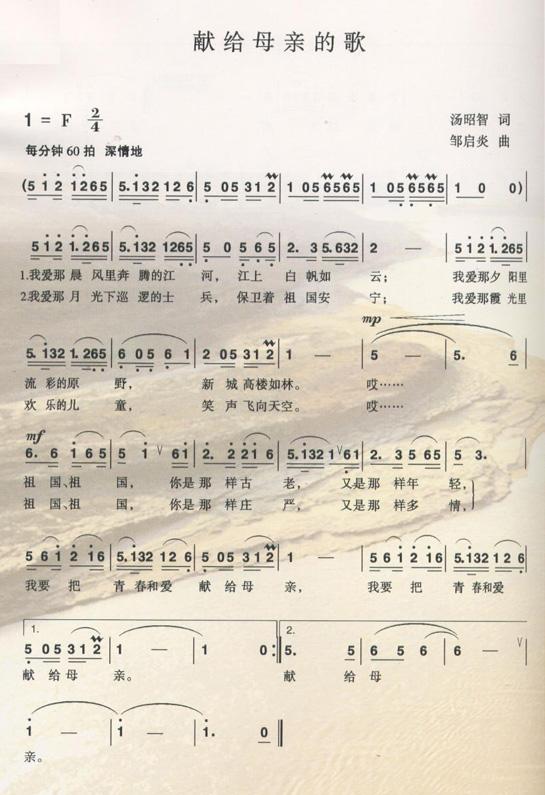 献给母亲的歌
1 = F 2/4
汤昭智 词
每分钟 60 拍 深情地
邹启炎 曲
(5 1 2 1265 | 5.132 12 6 | 5 05 31 2 | 1 05 6565 | 1 05 6565 | 1 0 0)
512 1.265 | 5.132 1265 | 5 0 5 6 5 | 2. 3 5.632 | 2 — | 512 1.265
1.我爱那 晨 风里奔 腾的江 河, 江上 白 帆如 云; 我爱那夕 阳里
2.我爱那 月 光下巡 逻的士 兵, 保卫着 祖 国安 宁; 我爱那霞 光里
mp
5.132 1.265 | 6 05 6 1 | 2 05 31 2 | 1 — | 5 — | 5. 6
流 彩的原 野, 新 城 高楼如林。 哎……
欢 乐的儿 童, 笑 声 飞向天空。 哎……
mf
6. 6 1 65 | 5 1 V 61 | 2. 2 21 6 | 5.132 1 V 61 | 2. 3 5 65 | 5 3.
祖 国、祖 国, 你是 那 样古 老, 又是 那 样年 轻,
祖 国、祖 国, 你是 那 样庄 严, 又是 那 样多 情,
5 61 2 16 | 5.132 12 6 | 5 05 31 2 | 1 — | 5 61 2 16 | 5.132 12 6
我要 把 青 春和爱 献 给母 亲, 我要 把 青 春和爱
1. 2.
5 05 31 2 | 1 — | 1 0 :| 5. 5 | 6 5 6 | 6 — V
献 给母 亲。 献 给 母
1 — | 1 — | 1. 0
亲。